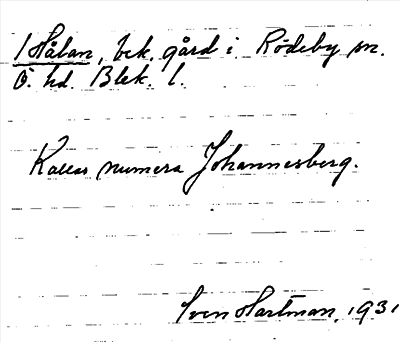 1 Hålan, bek. gård i Rödeby sn.
Ö. hd. Blek. l.
Kallas numera Johannesberg.
Sven Hartman, 1931